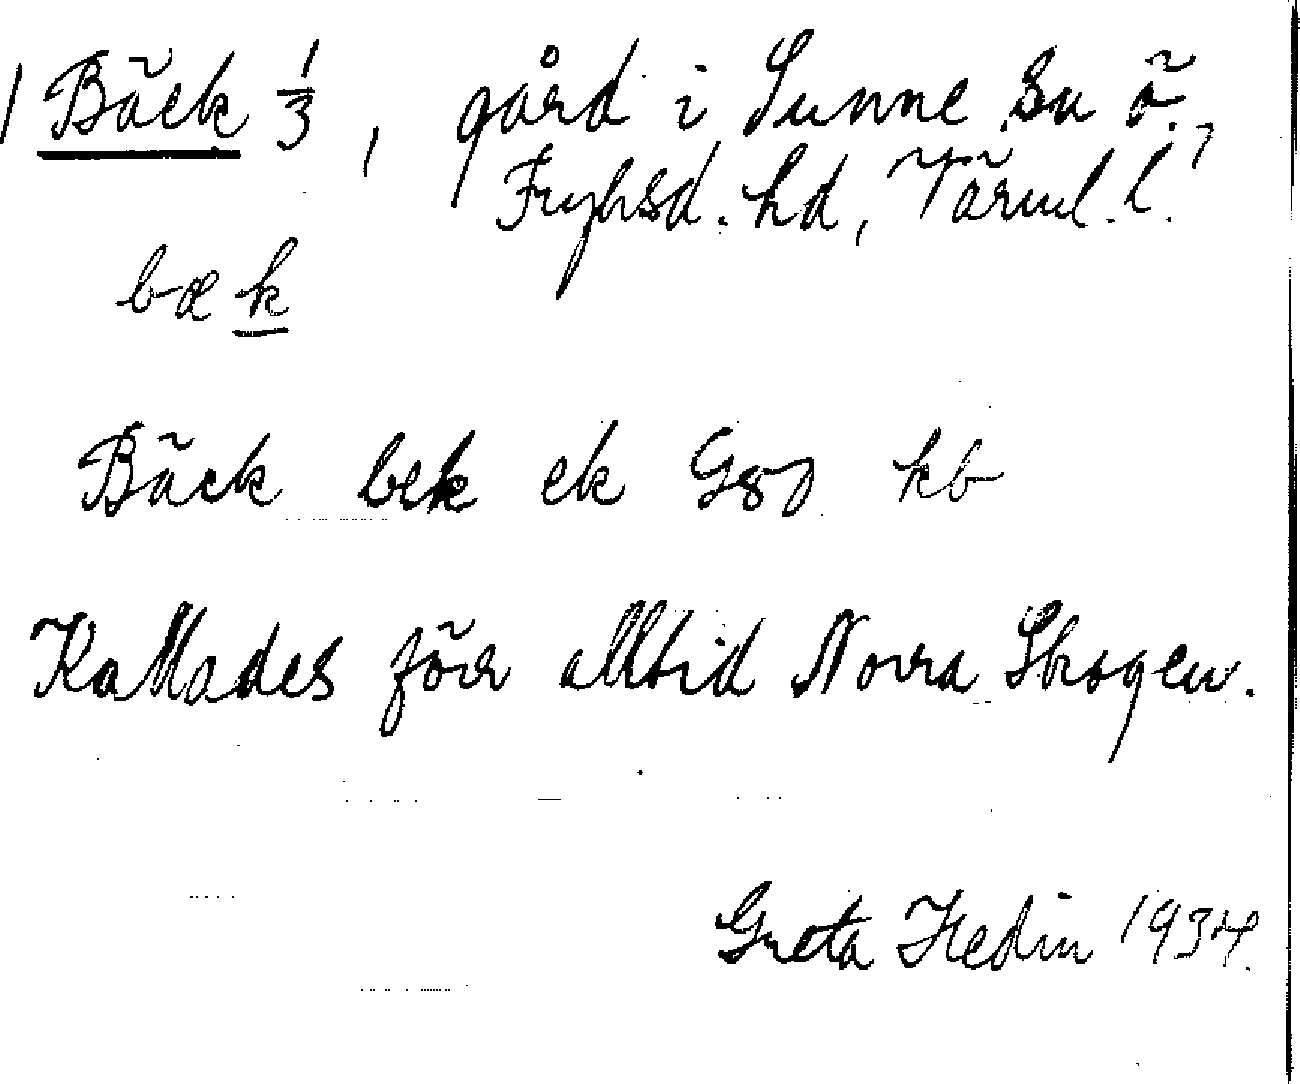 1 Bäck 1/3, gård i Sunne sn ö.,
Fryksd. hd, Värml. l.
bæk
Bäck bek ek Gsd kb
Kallades förr alltid Norra Skogen.
Greta Hedin 1934.